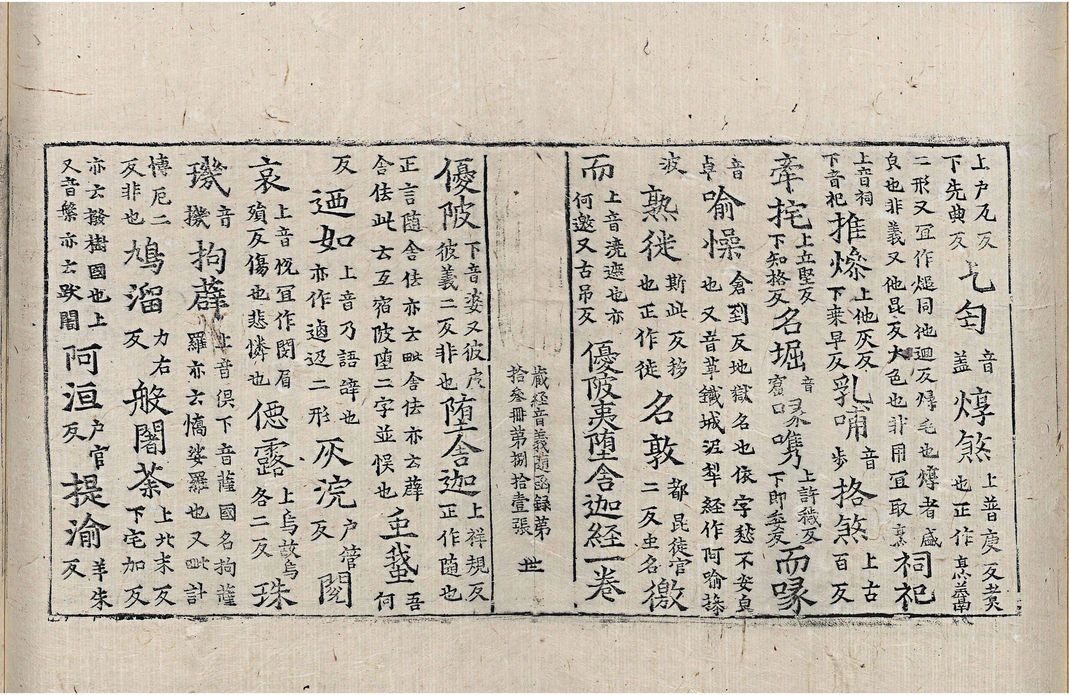 上户瓦反下先典反乞匄音盖焞煞上普庚反煑也正作
二形又冝作煺同他迴反焞毛也焞者盛皃也非義又他昆反大色也非用冝取祠祀
上音祠下音祀推燎上他灰反下乗早反乳哺音步挌煞上古百反
牽挓上立堅反下知格反名堀音窟喙嶲上許穢反下即委反而喙
音卓喻懆倉到反地獄名也依字愁不安皃也又音草鐵城泥犁經作阿喻操
波熟徙斯此反移也正作徙名敦都昆徒官二反虫名徼
而上音澆遮也亦何邀又古吊反優陂夷堕舎迦経一卷
藏經音義随函録第
拾叁冊第捌拾壹張 世
優陂下音婆又彼皮彼義二反非也堕舎迦上祥規反正作随也
正言随舎佉亦云毗舎佉亦云薜舎佉此云互宿陂堕二字並悮也䖝蟁吾何
反迺如上音乃語辝也亦作逎迟二形灰浣户管反閔
哀上音愍冝作閔眉殞反傷也悲憐也僫露上烏故烏各二反珠
璣音機拘薜上音俱下音薩國名拘薩羅亦云憍娑羅也又毗計
博厄二反非也鳩溜力右反般闍荼上北末反下宅加反
亦云撥樹國也上又音槃亦云跋闍阿洹户官反提渝羊朱反